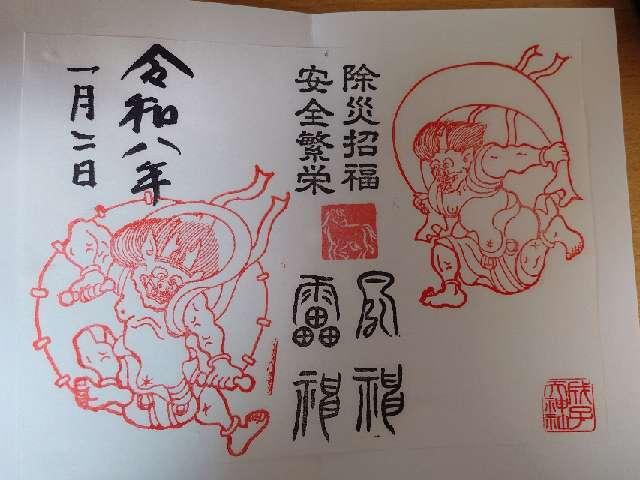 除災招福
安全繁栄
風神
雷神
令和八年
一月二日
成子
天神社